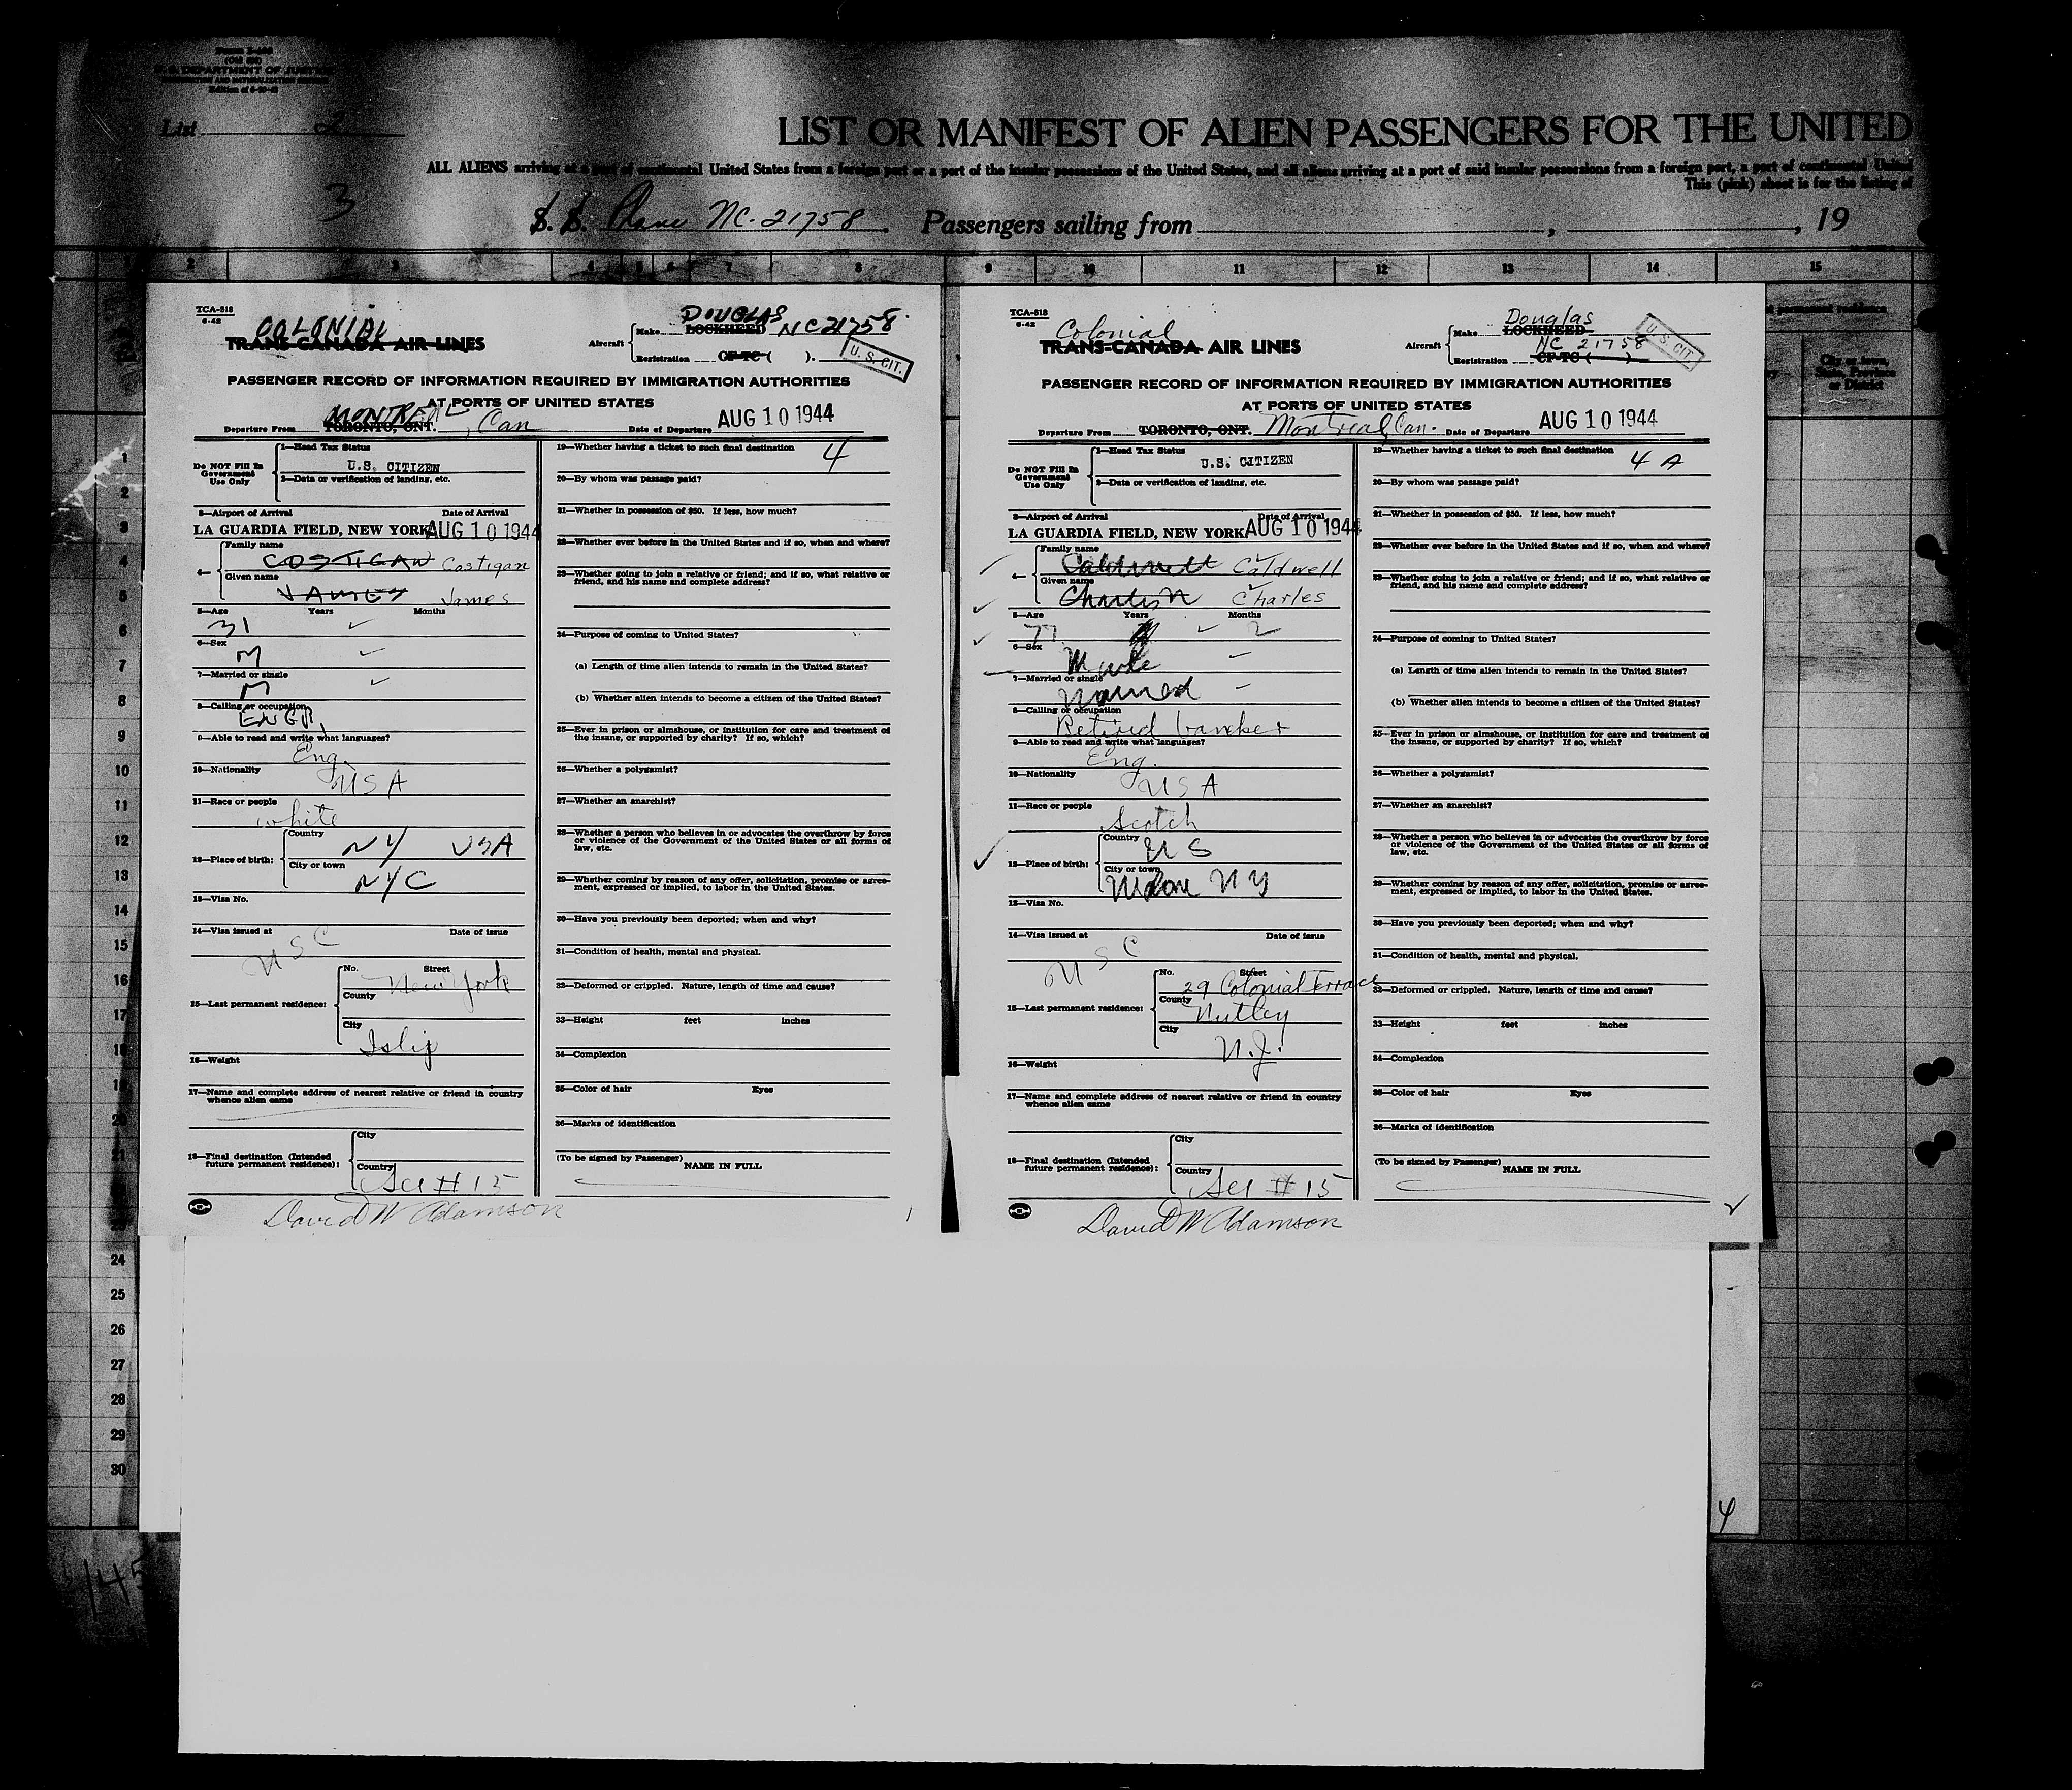 Form I-
(Old 500)
U. S. DEPARTMENT OF JUSTICE
IMMIGRATION AND NATURALIZATION SERVICE
List 2
LIST OR MANIFEST OF ALIEN PASSENGERS FOR THE UNITED
ALL ALIENS arriving at a port of continental United States from a foreign port or a port of the insular possessions of the United States, and all aliens arriving at a port of said insular possessions from a foreign port, a port of continental United
This (pink) sheet is for the listing of
3
S. S. Plane NC-21758. Passengers sailing from , , 19
2 3 4 5 6 7 8 9 10 11 12 13 14 15
permanent residence
City or town, State, Province or District
TCA-518
6-42
COLONIAL
TRANS-CANADA AIR LINES
Aircraft
DOUGLAS
Make LOCKHEED NC21758
Registration CF-TC ( ).
U. S. CIT.
PASSENGER RECORD OF INFORMATION REQUIRED BY IMMIGRATION AUTHORITIES
AT PORTS OF UNITED STATES
MONTREAL
Departure From TORONTO, ONT., Can Date of Departure AUG 10 1944
Do NOT Fill In
Government
Use Only
1—Head Tax Status
U.S. CITIZEN
2—Data or verification of landing, etc.
3—Airport of Arrival Date of Arrival
LA GUARDIA FIELD, NEW YORK AUG 10 1944
4—
Family name
COSTIGAN Costigan
Given name
JAMES James
5—Age Years Months
31
6—Sex
M
7—Married or single
M
8—Calling or occupation
ENGR.
9—Able to read and write what languages?
Eng.
10—Nationality
USA
11—Race or people
white
12—Place of birth:
Country
NY USA
City or town
NYC
13—Visa No.
14—Visa issued at Date of issue
USC
15—Last permanent residence:
No. Street
New York
County
City
Islip
16—Weight
17—Name and complete address of nearest relative or friend in country
whence alien came
18—Final destination (Intended
future permanent residence):
City
Country
See # 15
David W Adamson
19—Whether having a ticket to such final destination
4
20—By whom was passage paid?
21—Whether in possession of $50. If less, how much?
22—Whether ever before in the United States and if so, when and where?
23—Whether going to join a relative or friend; and if so, what relative or
friend, and his name and complete address?
24—Purpose of coming to United States?
(a) Length of time alien intends to remain in the United States?
(b) Whether alien intends to become a citizen of the United States?
25—Ever in prison or almshouse, or institution for care and treatment of
the insane, or supported by charity? If so, which?
26—Whether a polygamist?
27—Whether an anarchist?
28—Whether a person who believes in or advocates the overthrow by force
or violence of the Government of the United States or all forms of
law, etc.
29—Whether coming by reason of any offer, solicitation, promise or agree-
ment, expressed or implied, to labor in the United States.
30—Have you previously been deported; when and why?
31—Condition of health, mental and physical.
32—Deformed or crippled. Nature, length of time and cause?
33—Height feet inches
34—Complexion
35—Color of hair Eyes
36—Marks of identification
(To be signed by Passenger)
NAME IN FULL
TCA-518
6-42
Colonial
TRANS-CANADA AIR LINES
Aircraft
Douglas
Make LOCKHEED
NC 21758
Registration CF-TC ( ).
U. S. CIT.
PASSENGER RECORD OF INFORMATION REQUIRED BY IMMIGRATION AUTHORITIES
AT PORTS OF UNITED STATES
Departure From TORONTO, ONT. Montreal, Can. Date of Departure AUG 10 1944
Do NOT Fill In
Government
Use Only
1—Head Tax Status
U.S. CITIZEN
2—Data or verification of landing, etc.
3—Airport of Arrival Date of Arrival
LA GUARDIA FIELD, NEW YORK AUG 10 1944
4—
Family name
Caldwell Caldwell
Given name
Charles Charles
5—Age Years Months
77 2
6—Sex
Male
7—Married or single
Married
8—Calling or occupation
Retired banker
9—Able to read and write what languages?
Eng.
10—Nationality
USA
11—Race or people
Scotch
12—Place of birth:
Country
US
City or town
NY
13—Visa No.
14—Visa issued at Date of issue
USC
15—Last permanent residence:
No. Street
29 Colonial Terrace
County
Nutley
City
N.J.
16—Weight
17—Name and complete address of nearest relative or friend in country
whence alien came
18—Final destination (Intended
future permanent residence):
City
Country
See # 15
David W Adamson
19—Whether having a ticket to such final destination
4 A
20—By whom was passage paid?
21—Whether in possession of $50. If less, how much?
22—Whether ever before in the United States and if so, when and where?
23—Whether going to join a relative or friend; and if so, what relative or
friend, and his name and complete address?
24—Purpose of coming to United States?
(a) Length of time alien intends to remain in the United States?
(b) Whether alien intends to become a citizen of the United States?
25—Ever in prison or almshouse, or institution for care and treatment of
the insane, or supported by charity? If so, which?
26—Whether a polygamist?
27—Whether an anarchist?
28—Whether a person who believes in or advocates the overthrow by force
or violence of the Government of the United States or all forms of
law, etc.
29—Whether coming by reason of any offer, solicitation, promise or agree-
ment, expressed or implied, to labor in the United States.
30—Have you previously been deported; when and why?
31—Condition of health, mental and physical.
32—Deformed or crippled. Nature, length of time and cause?
33—Height feet inches
34—Complexion
35—Color of hair Eyes
36—Marks of identification
(To be signed by Passenger)
NAME IN FULL
1
2
3
4
5
6
7
8
9
10
11
12
13
14
15
16
17
18
19
20
21
24
25
26
27
28
29
30
4
145